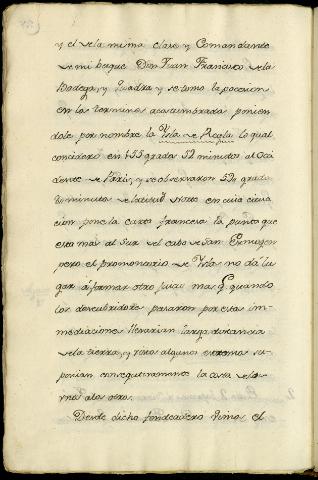 y el de la misma clase y Comandante
de mi buque Don Juan Francisco de la
Bodega, y Quadra y se tomo la pocecion
en los terminos acostumbrados ponien
dole por nombre la Ysla de lo qual
concidero en 155 grados 52 minutos al Occi
dente de Paris, y se observaron grados
minutos de latitud Norte en cuia citua
cion pone la carta francesa la punta que
esta mas al Sur del cabo de San Ermogen
pero el promontorio de Ysla no dá lu
gar á formar otro juicio mas q. quando
los descubridores pasaron por estas im-
mediaciones llevarian larga distancia
de la tierra, y vistos algunos extremos su-
ponian consequtivamente la costa de lo
unos a los otros.
Desde dicho fondeadero vimos el